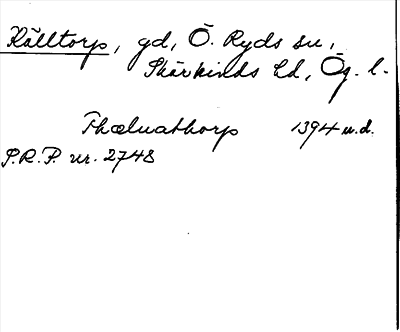 Källtorp, gd, Ö. Ryds sn,
Skärkinds hd, Ög. l.
Thæluathorp 1394 u.d.
P.R.P. nr. 2748